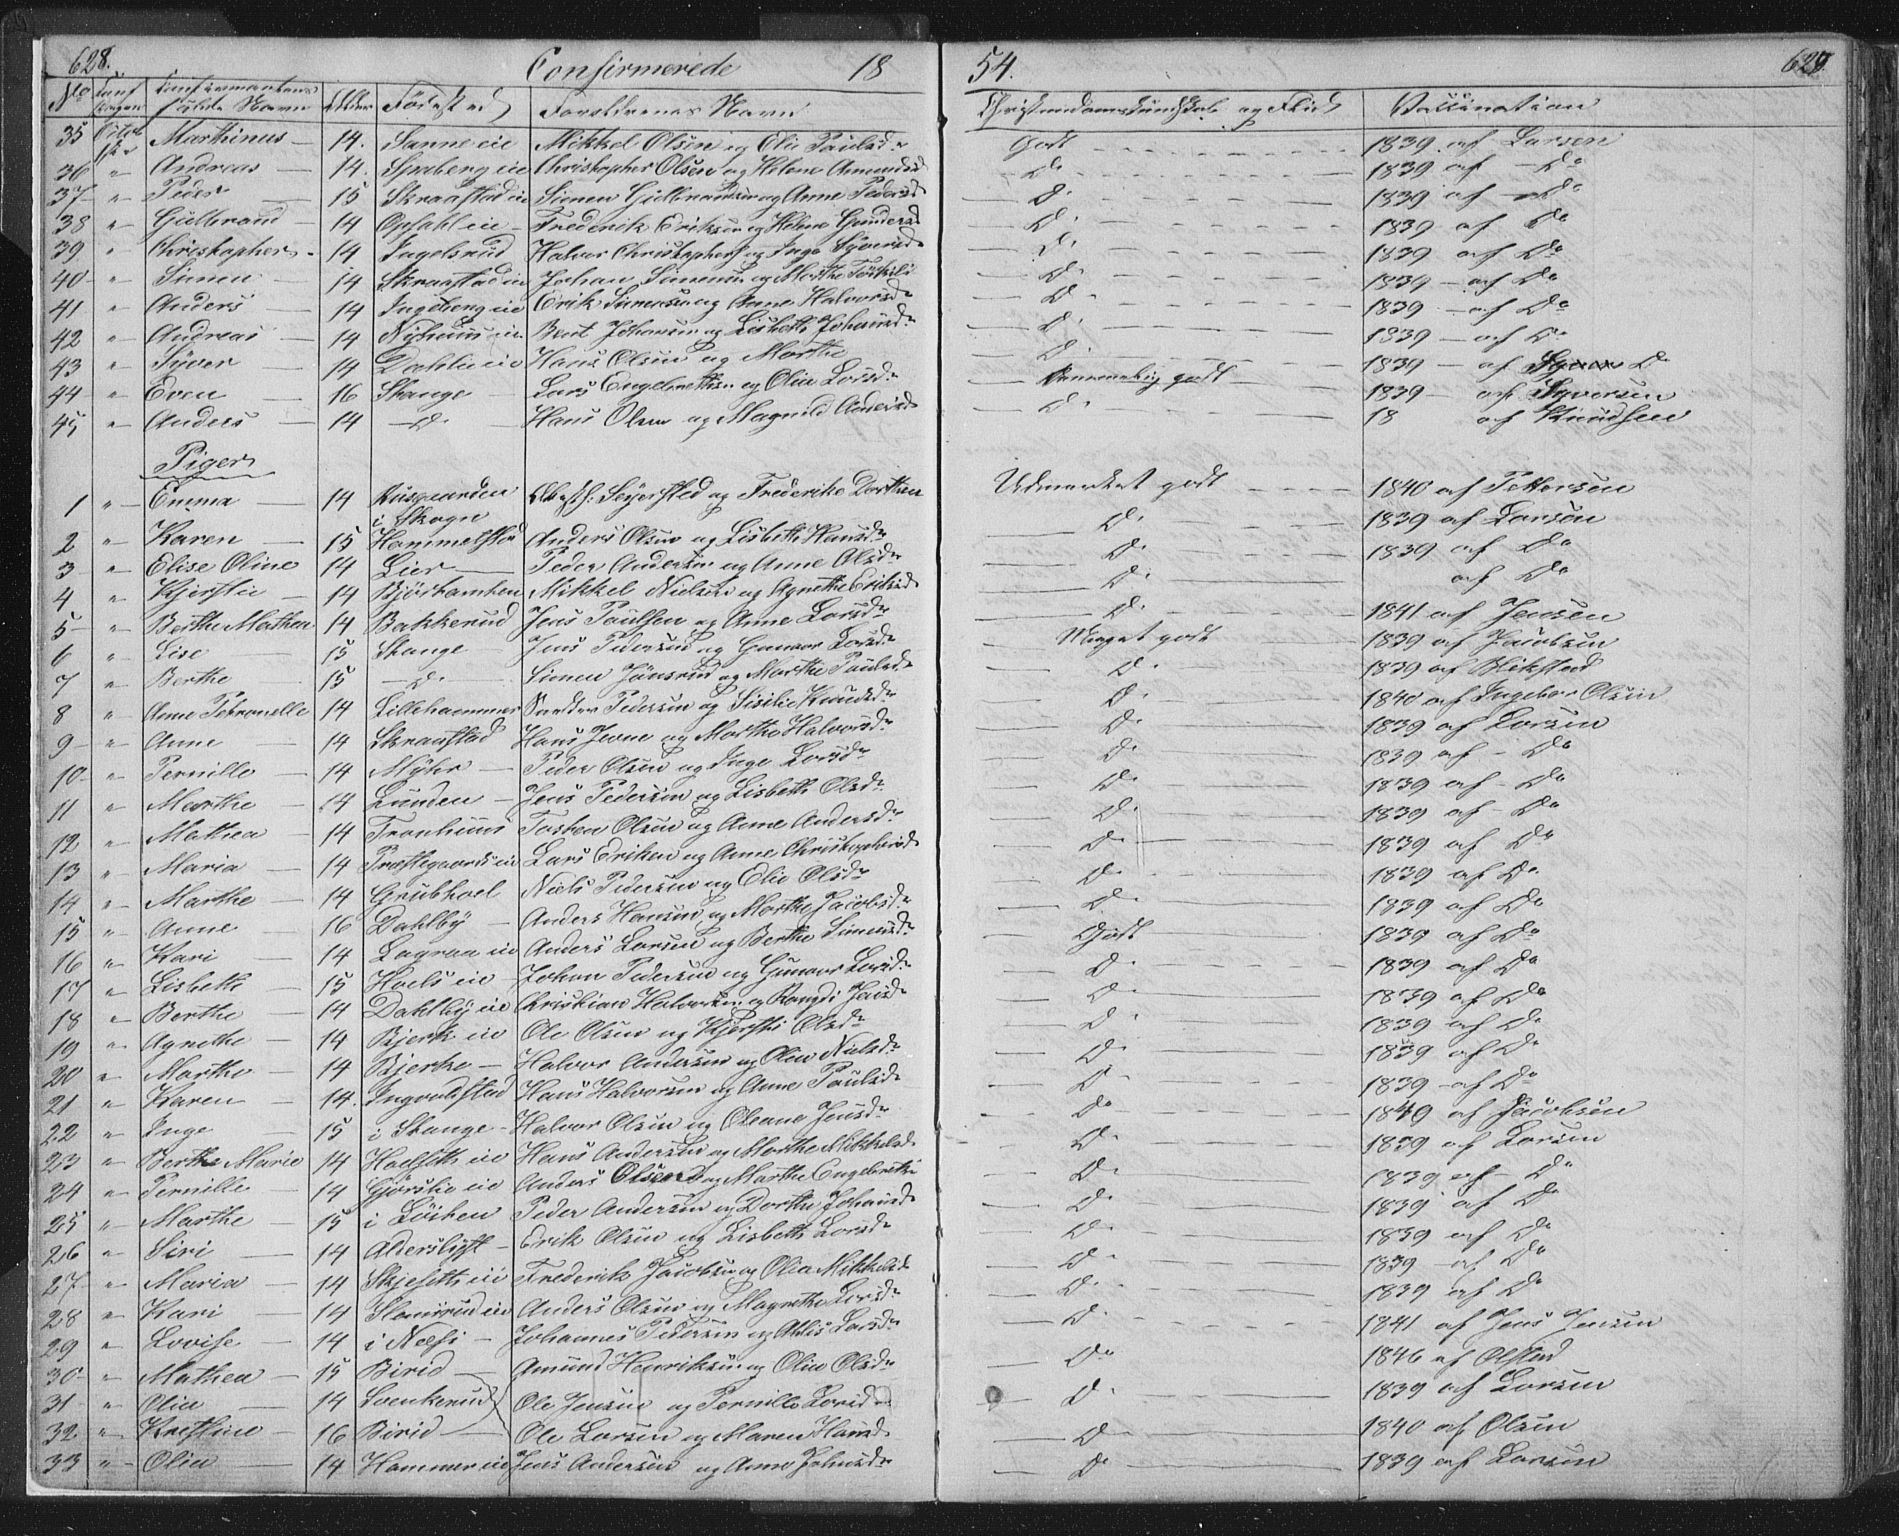 628. Confirmerede 18 54. 629.
No Alder Fødested Forældrenes Navn Christendomskundskab og Flid Vaccination
35 Martinus 14. Sanne eie Mikkel Olsen og Elie Paulsd. Godt 1839 af Larsen
36 " Andreas 14. Spaberg eie Christopher Olsen og Helene Amundsd Do 1839 af Do
37 " Peder 15 Skraastad eie Simen Gulbrandsen og Anne Pedersd Do 1839 af Do
38 " Gulbrand 14 Opsahl eie Frederik Eriksen og Helene Gundersd Do 1839 af Do
39 " Christopher 14 Ingelsrud Halvor Christophers og Inge Syversd. Do 1839 af Do
40 " Simen 14 Skraastad eie Johan Simensen og Marthe Do 1839 af Do
41 " Anders 14 Ingeberg eie Erik Simensen og Anne Halvorsd. Do 1839 af Do
42 " Andreas 14 Nyhuus eie Bent Johansen og Lisbeth Johansd. Do 1839 af Do
43 " Syver 14 Dahlie eie Hans Olsen og Marthe Do 1839 af Do
44 " Even 16 Stange Lars Engebrethsen og Olia Larsd. godt 1839 af Syversen
45 " Anders 14 Do Hans Olsen og Magnild Andersd Do 18 af Knudsen
Piger
1 " Emma 14 Huusgaarden Seyersted og Frederike Dorthea Udmærket godt 1840 af Pettersen
i Skogn
2 " Karen 15 Hommelstad Anders Olsen og Lisbeth Hansd. Do 1839 af Larsen
3 " Elise Oline 14 Lier Peder Andersen og Anne Olsd. Do 1839 af Do
4 " Kjerstie 14 Mikkel Nielsen og Agnethe Eriksd Do af Do
5 " Berthe Mathea 14 Bakkerud Jens Paulsen og Anne Larsd. Do 1841 af Jensen
6 " Lise 15 Stange Jens Pedersen og Gunvor Larsd. Meget godt 1839 af Jacobsen
7 " Berthe 15 Do Simen Jönsrud og Marthe Paulsd. Do 1839 af Blikstad
8 " Anne Petronelle 14 Lillehammer Pedersen og Sisilie Knudsd. Do 1840 af Ingebor Olsen
9 " Anne 14 Skraastad Hans Jevne og Marthe Halvorsd. Do 1839 af Larsen
10 " Pernille 14 Myhr Peder Olsen og Inge Larsd. Do 1839 af Do
11 " Marthe 14 Lunden Jens Pedersen og Lisbeth Olsd. Do 1839 af Do
12 " Mathea 14 Tronhuus Torsten Olsen og Anne Andersd. Do 1839 af Do
13 " Maria 14 Præstegaards eie Lars Eriksen og Anne Christophersd Do 1839 af Do
14 " Marthe 14 Grubhoel Niels Pedersen og Elie Olsd. Do 1839 af Do
15 " Anne 16 Dahlby Anders Hansen og Marthe Jacobsd. Do 1839 af Do
16 " Kari 14 Lagraa eie Anders Larsen og Berthe Simensd. Godt 1839 af Do
17 " Lisbeth 15 Hoels eie Johan Pedersen og Gunvor Larsd. Do 1839 af Do
18 " Berthe 14 Dahlby eie Christian Halvorsen og Rangdi Jensd. Do 1839 af Do
19 " Agnethe 14 Bjerk eie Ole Olsen og Kjersti Olsd. Do 1839 af Do
20 " Marthe 14 Bjerke Halvor Andersen og Olia Nielsd. Do 1839 af Do
21 " Karen 14. Ingvaldstad Hans Halvorsen og Anne Paulsd. Do 1839 af Do
22 " Inge 15 i Stange Halvor Olsen og Oleane Jensd. Do 1849 af Jacobsen
23 " Berthe Marie 14 Hoelseth eie Hans Andersen og Marthe Mikkelsd Do 1839 af Larsen
24 " Pernille 14 Gjørslie eie Anders Olsen og Marthe Engebrets. Do 1839 af Do
25 " Marthe 15 i Löiten Peder Andersen og Dorthe Johansd Do 1839 af Do
26 " Siri 14 Alderslyst Erik Olsen og Lisbeth Larsd. Do 1839 af Do
27 " Maria 14 Skjeseth eie Frederik Jacobsen og Olia Mikkelsd Do 1839 af Do
28 " Kari 14 Slemsrud eie Anders Olsen og Magnethe Larsd. Do 1839 af Do
29 " Lovise 14 i Næss Johannes Pedersen og Athis Larsd. Do 1841 af Jens Jensen
30 " Mathea 15 Birid Amund Henriksen og Olia Olsd. Do 1846 af Olstad
31 " Olia 14 Ole Jensen og Pernille Larsd Do 1839 af Larsen
32 " Kristine 16 Birid Ole Larsen og Maren Hansd. Do 1840 af Olsen
33 " Olia 14 Hammer eie Jens Andersen og Anne Johnsd. Do 1839 af Larsen